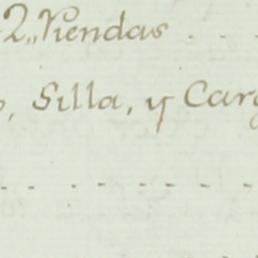 2,, Riendas . . .
, Silla, y Carg